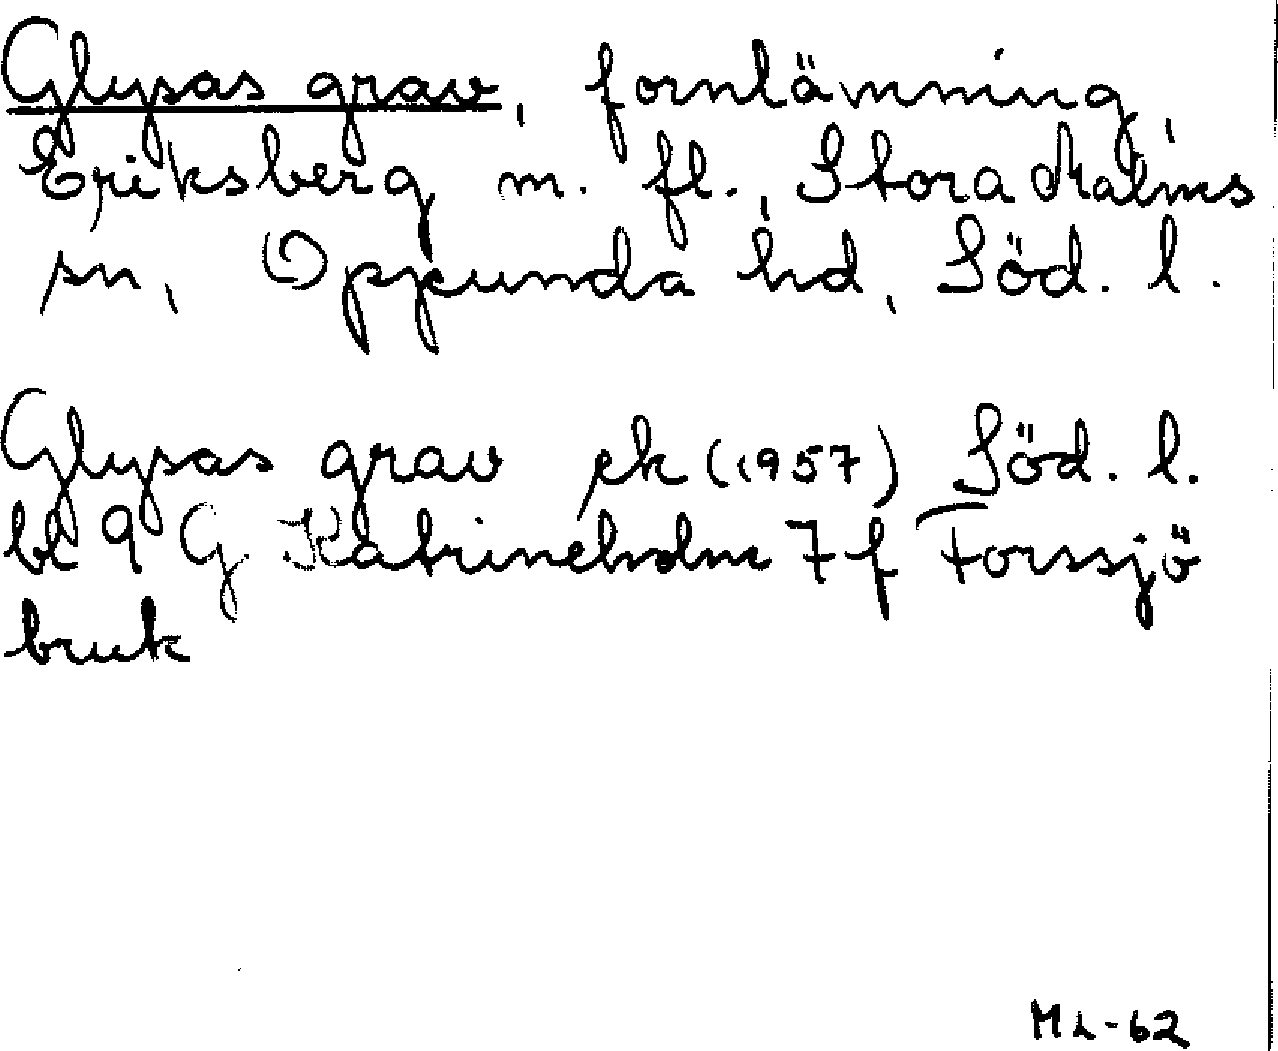 Glysas grav, fornlämning,
Eriksberg m. fl., Stora Malms
sn, Oppunda hd, Söd. l.
Glysas grav ek (1957) Söd. l.
bl 9 G Katrineholm 7 f Forssjö
bruk
ML-62